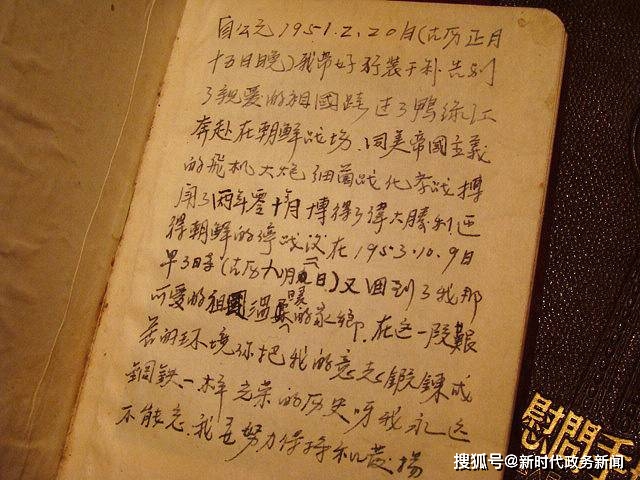 自公元1951.2.20日(古历正月
十五日晚)我带好行装干补告别
了親爱的祖國跨过了鴨绿江
奔赴在朝鮮战场.同美帝國主義
的飛机大炮细菌战化学战搏
闹了两年零十月博得了偉大勝利迫
得朝鮮的停战议在1953.10.9日
早3日手(古历九月日)又回到了我那
可爱的祖國温暖的家鄉.在这一段艱
苦的环境你把我的意志锻鍊成
鋼鉄一样光荣的历史呀我永远
不能忘.我要努力保持和發揚
慰問手
搜狐号@新时代政务新闻